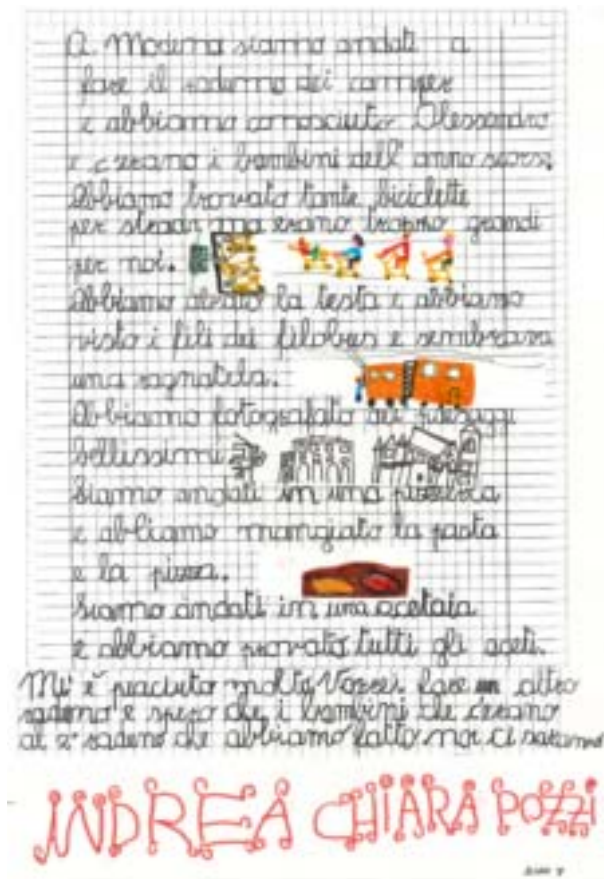 A Modena siamo andati a
fare il raduno dei camper
e abbiamo conosciuto Alessandro
e c'erano i bambini dell'anno scorso.
Abbiamo trovato tante biciclette
per strada ma erano troppo grandi
per noi.
Abbiamo alzato la testa e abbiamo
visto i fili dei filobus e sembrava
una ragnatela.
Abbiamo fotografato dei paesaggi
bellissimi.
Siamo andati in una pizzeria
e abbiamo mangiato la pasta
e la pizza.
Siamo andati in una acetaia
e abbiamo provato tutti gli aceti.
Mi è piaciuto molto Vorrei fare un altro
raduno e spero che i bambini che c'erano
al 2° raduno che abbiamo fatto noi ci saranno
ANDREA CHIARA POZZI